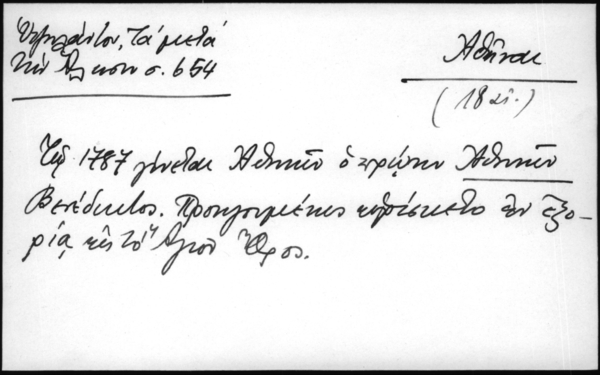 Ὑψηλάντου, Τὰ μετὰ
τὴν Ἅλωσιν σ. 654
Ἀθῆναι
(18 αἰ.)
Τῷ 1787 γίνεται Ἀθηνῶν ὁ πρῴην Ἀθηνῶν
Βενέδικτος. Προηγουμένως εὑρίσκετο ἐν ἐξο-
ρίᾳ εἰς τὸ Ἅγιον Ὄρος.